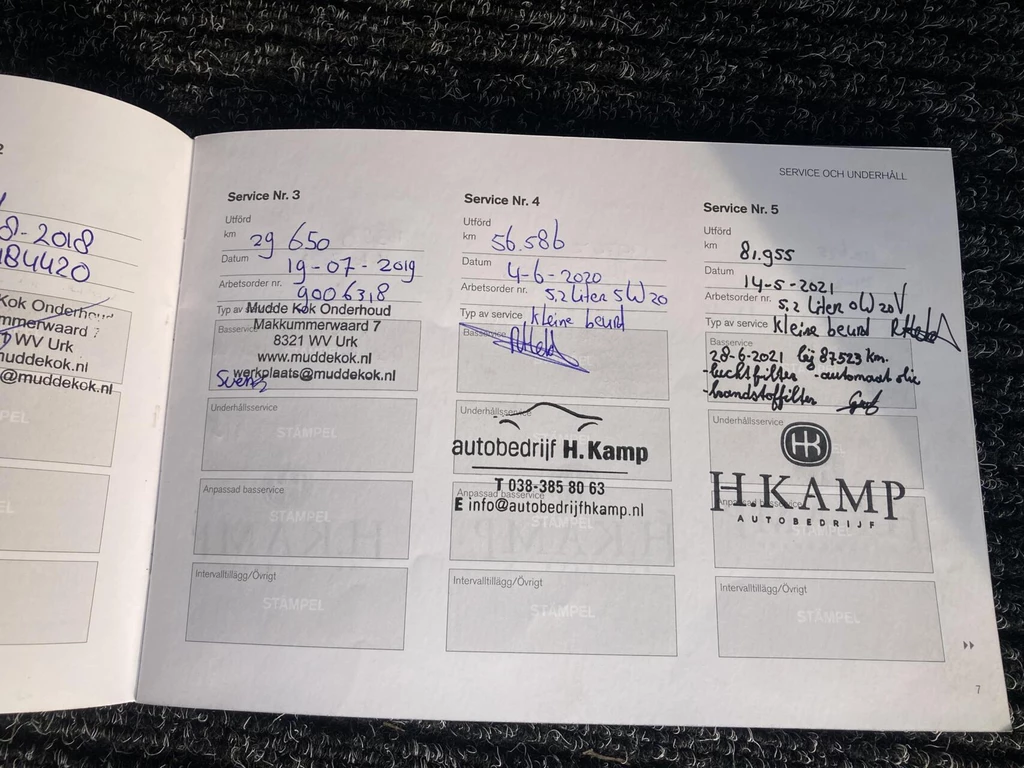 2
8-2018
184420
Kok Onderhoud
mmerwaard 7
WV Urk
muddekok.nl
@muddekok.nl
SERVICE OCH UNDERHÅLL
Service Nr. 3
Utförd
km 29 650
Datum 19-07-2019
Arbetsorder nr. 9006318
Typ av Mudde Kok Onderhoud
Basservice Makkummerwaard 7
8321 WV Urk
www.muddekok.nl
werkplaats@muddekok.nl
Underhållsservice
STÄMPEL
Anpassad basservice
STÄMPEL
Intervalltillägg/Övrigt
STÄMPEL
Service Nr. 4
Utförd
km 56.586
Datum 4-6-2020
Arbetsorder nr. 5,2 Liter 5W20
Typ av service kleine beurt
Basservice
Underhållsservice
autobedrijf H.Kamp
T 038-385 80 63
Anpassad basservice
E info@autobedrijfhkamp.nl
STÄMPEL
Intervalltillägg/Övrigt
STÄMPEL
Service Nr. 5
Utförd
km 81.955
Datum 14-5-2021
Arbetsorder nr. 5,2 Liter 0W20V
Typ av service kleine beurt
Basservice
28-6-2021 bij 87523 km.
-luchtfilter -automaat olie
-brandstoffilter
Underhållsservice
HK
H.KAMP
AUTOBEDRIJF
STÄMPEL
Intervalltillägg/Övrigt
STÄMPEL
7